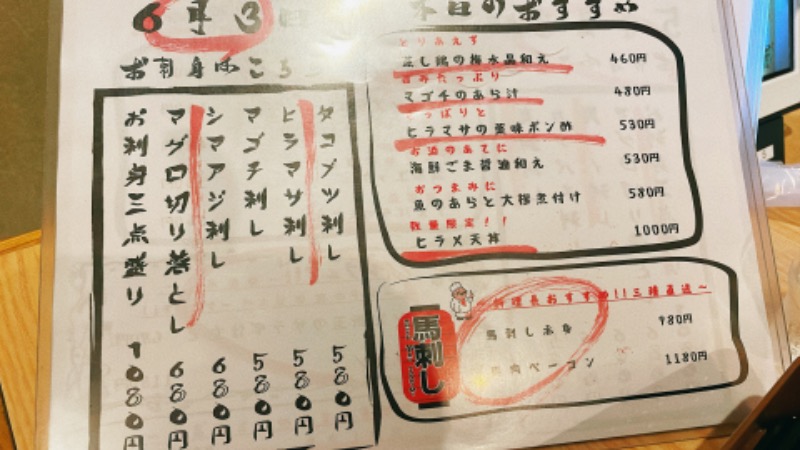 6月3日
本日のおすすめ
お刺身はこちら
タコブツ刺し 580円
ヒラマサ刺し 580円
マゴチ刺し 580円
シマアジ刺し 680円
マグロ切り落とし 680円
お刺身三点盛り 1080円
とりあえず
蒸し鶏の梅水晶和え 460円
旨みたっぷり
マゴチのあら汁 480円
さっぱりと
ヒラマサの薬味ポン酢 530円
お酒のあてに
海鮮ごま醤油和え 530円
おつまみに
魚のあらと大根煮付け 580円
数量限定!!
ヒラメ天丼 1000円
料理長おすすめ!!三種直送~
馬刺し
馬刺し赤身 980円
馬肉ベーコン 1180円